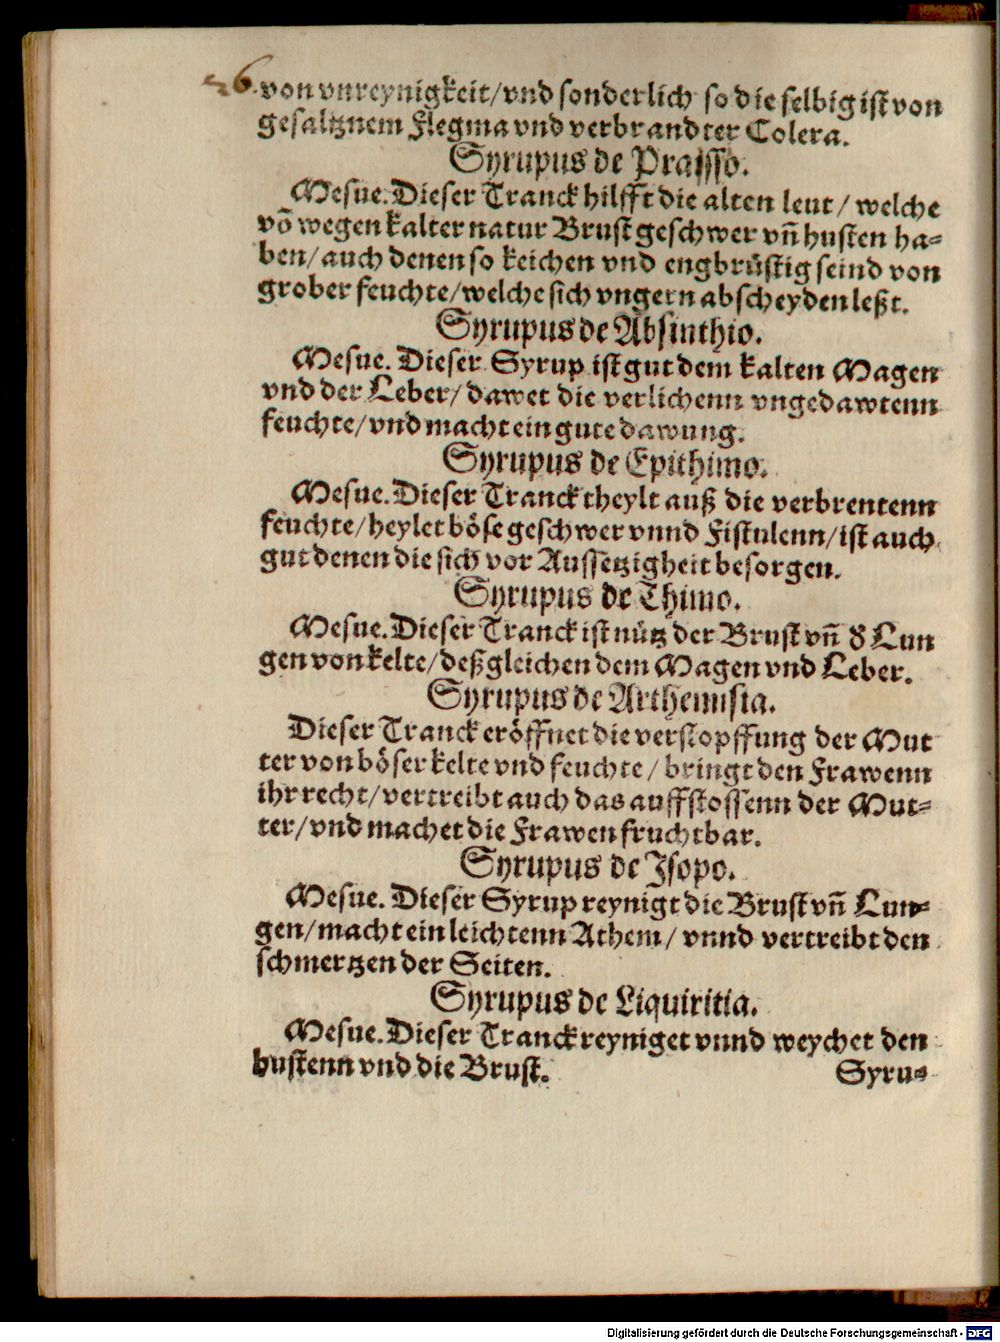 26.
von vnreynigkeit/vnd sonderlich so die selbig ist von
gesaltznem Flegma vnd verbrandter Colera.
Syrupus de Prassso.
Mesue. Dieser Tranck hilfft die alten leut/ welche
võ wegen kalter natur Brustgeschwer vñ husten ha-
ben/ auch denen so keichen vnd engbrüstig seind von
grober feuchte/welche sich vngern abscheyden leßt.
Syrupus de Absinthio.
Mesue. Dieser Syrup ist gut dem kalten Magen
vnd der Leber/ dawet die verlichenn vngedawtenn
feuchte/vnd macht ein gute dawung.
Syrupus de Epithimo.
Mesue. Dieser Tranck theylt auß die verbrentenn
feuchte/heylet böse geschwer vnnd Fistulenn/ist auch
gut denen die sich vor Aussetzigheit besorgen.
Syrupus de Thimo.
Mesue. Dieser Tranck ist nütz der Brust vñ d Lun
gen von kelte/deßgleichen dem Magen vnd Leber.
Syrupus de Arthemisia.
Dieser Tranck eröffnet die verstopffung der Mut
ter von böser kelte vnd feuchte/ bringt den Frawenn
ihr recht/vertreibt auch das auffstossenn der Mut-
ter/vnd machet die Frawen fruchtbar.
Syrupus de Isopo.
Mesue. Dieser Syrup reynigt die Brust vñ Lun-
gen/macht ein leichtenn Athem/ vnnd vertreibt den
schmertzen der Seiten.
Syrupus de Liquiritia.
Mesue. Dieser Tranck reyniget vnnd weychet den
hustenn vnd die Brust.
Syru-
Digitalisierung gefördert durch die Deutsche Forschungsgemeinschaft - DFG